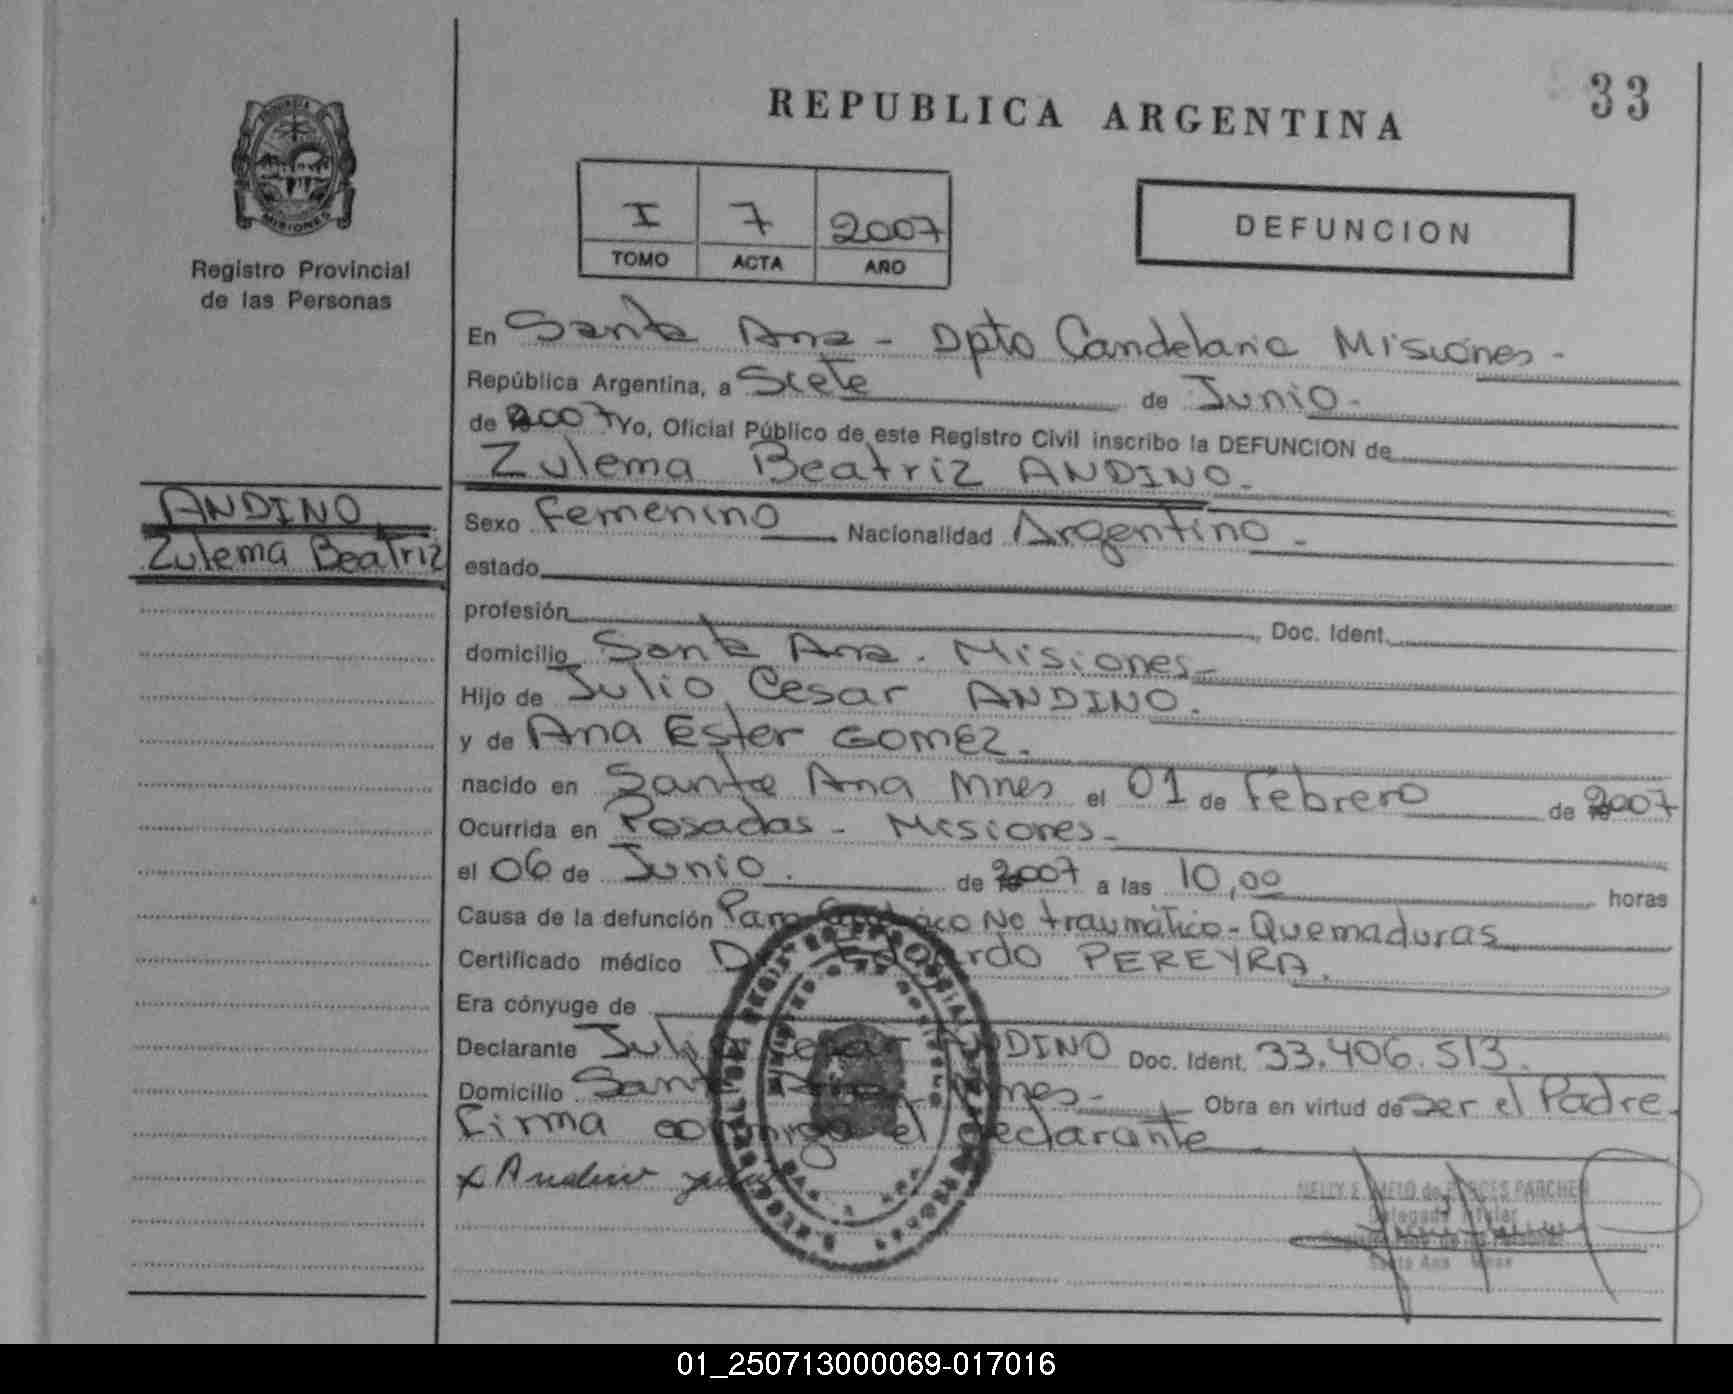 33
REPUBLICA ARGENTINA
MISIONES
Registro Provincial
de las Personas
I 7 2007
TOMO ACTA AÑO
DEFUNCION
En Santa Ana - Dpto Candelaria Misiones -
República Argentina, a Siete de Junio -
de 2007 Yo, Oficial Público de este Registro Civil inscribo la DEFUNCION de
Zulema Beatriz ANDINO.
ANDINO
Zulema Beatriz
Sexo Femenino Nacionalidad Argentino -
estado
profesión , Doc. Ident.
domicilio Santa Ana . Misiones -
Hijo de Julio Cesar ANDINO.
y de Ana Ester GOMEZ.
nacido en Santa Ana Mnes el 01 de Febrero de 2007
Ocurrida en Posadas - Misiones -
el 06 de Junio . de 2007 a las 10,00 horas
Causa de la defunción Paro No traumático - Quemaduras
Certificado médico Eduardo PEREYRA.
Era cónyuge de
Declarante Julio Cesar ANDINO Doc. Ident. 33.406.513.
Domicilio Santa Ana Mnes - Obra en virtud de Ser el Padre.
Firma conmigo el declarante
x Andino
NELLY E. de PARCHEN
Delegada Titular
Santa Ana Mnes
01_250713000069-017016